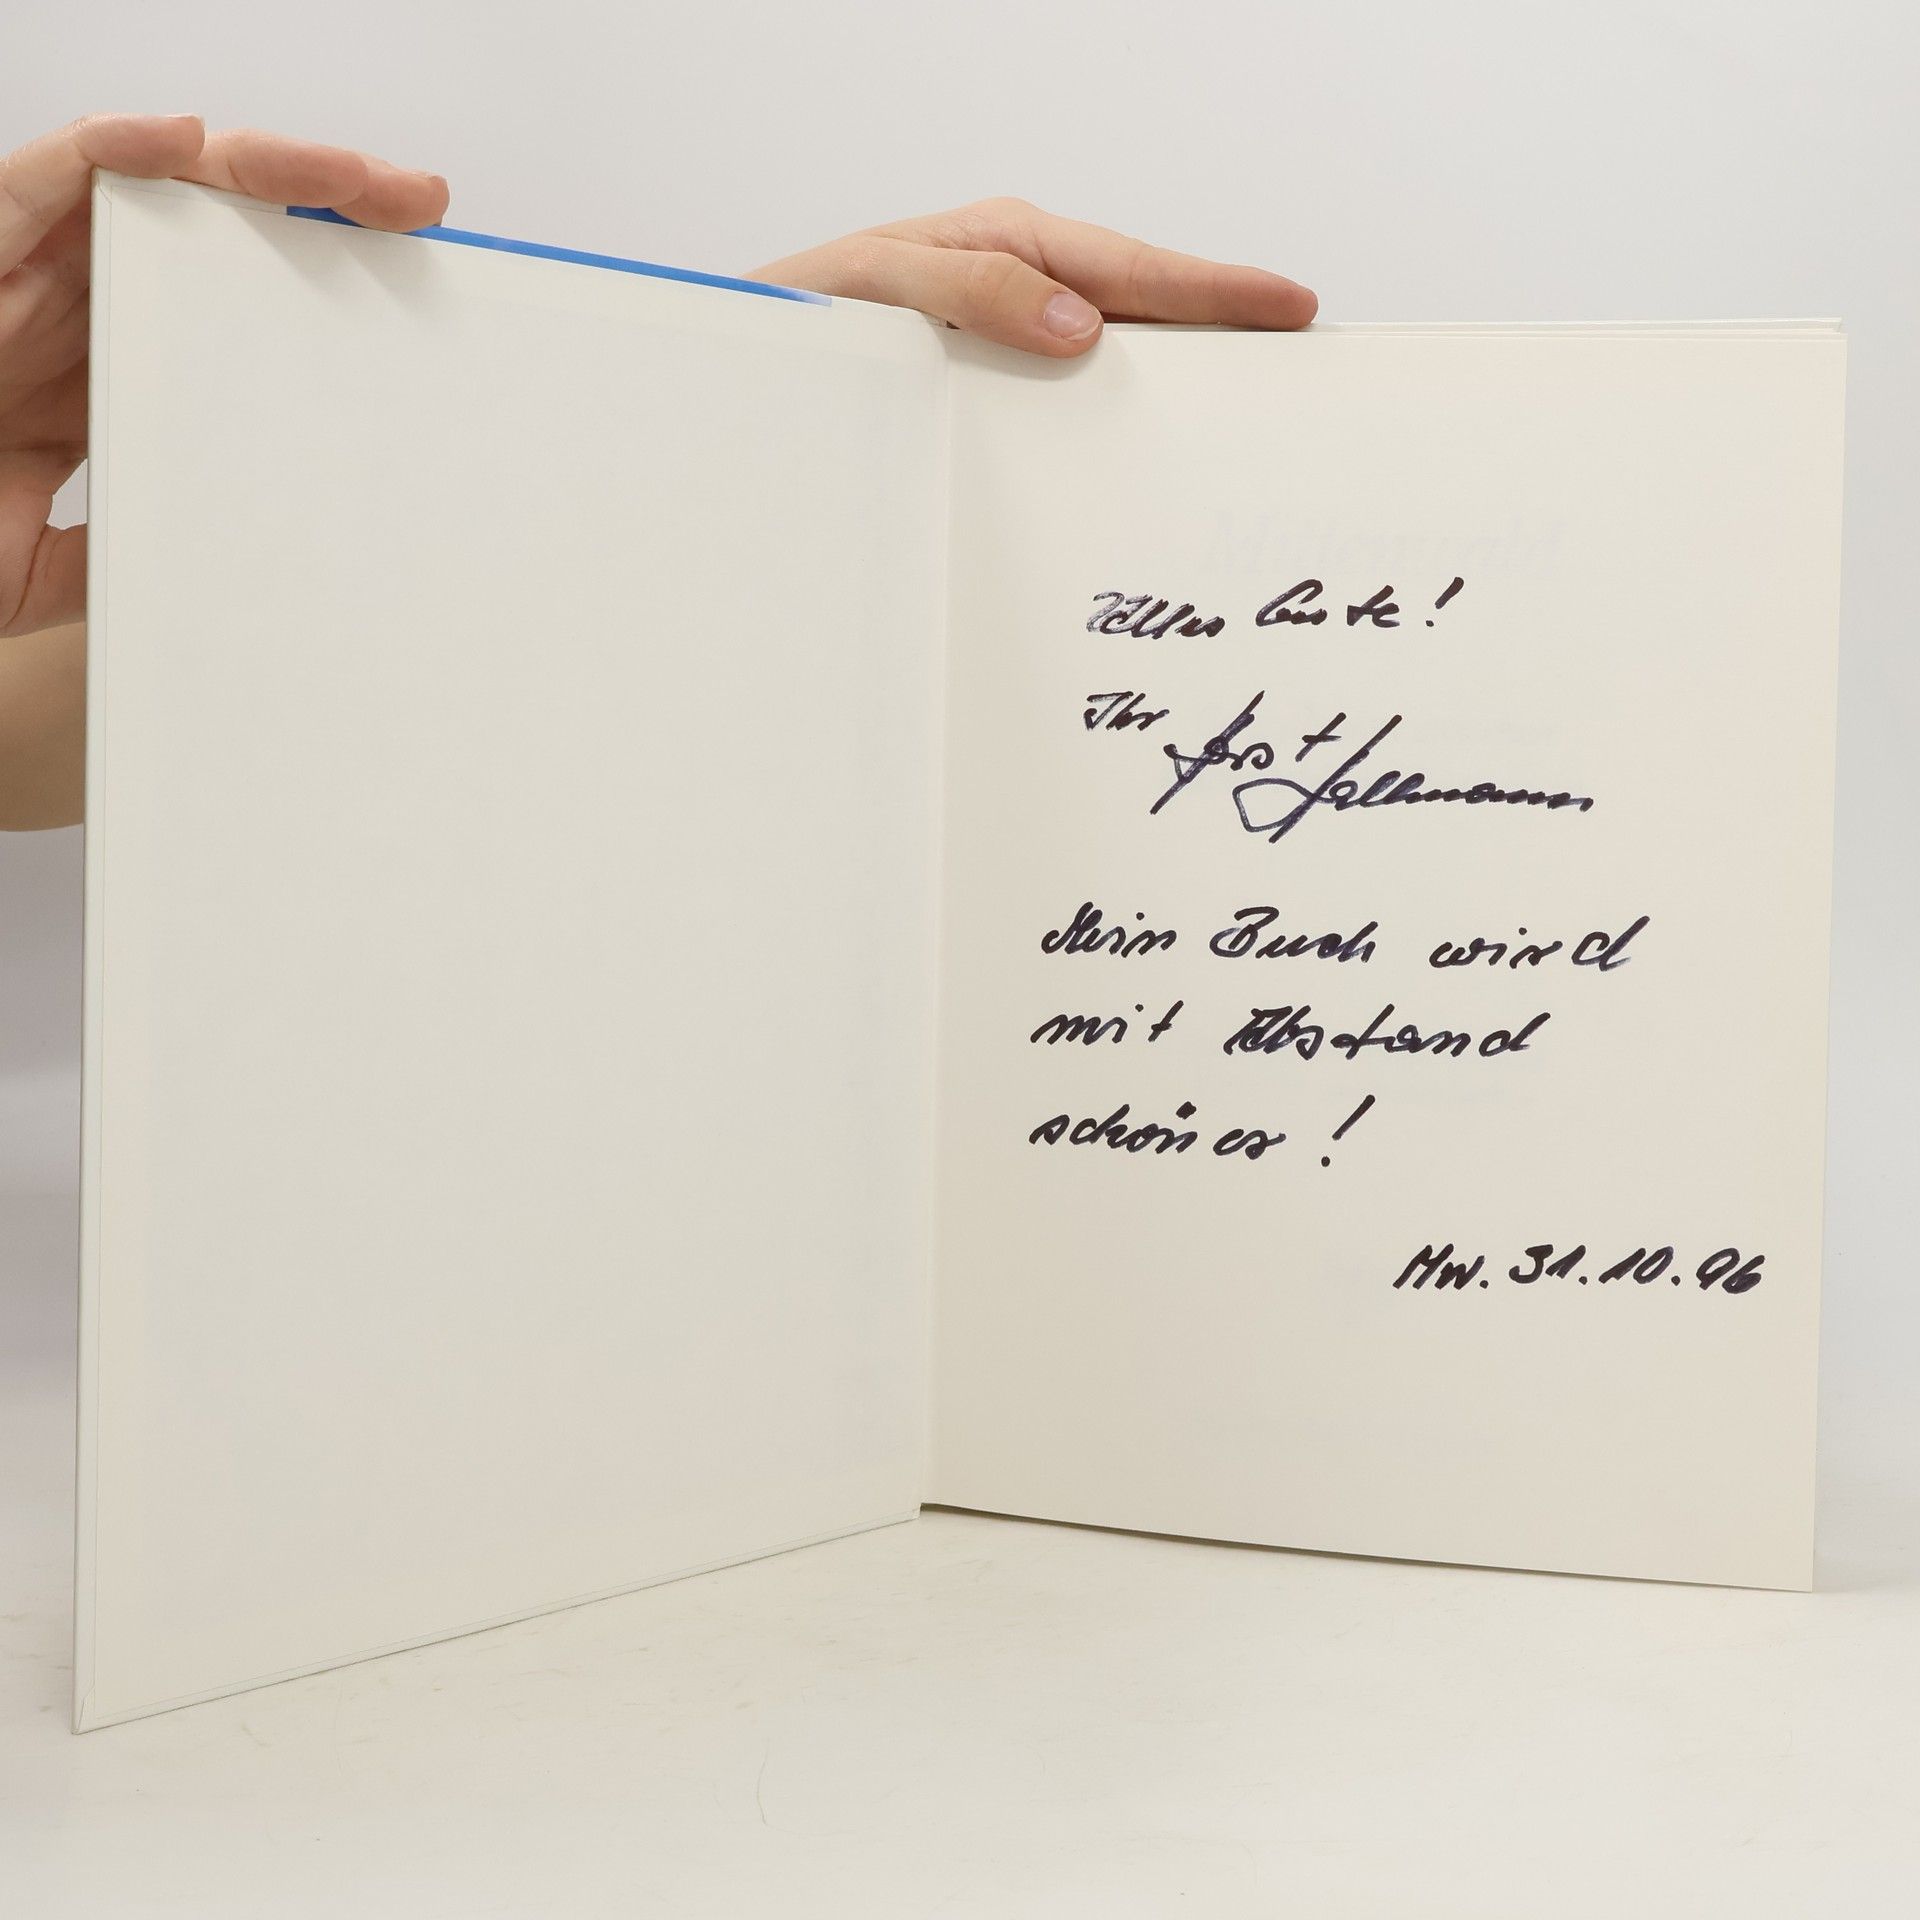 Alles Gute!
Ihr Horst Hallmann
Mein Buch wird
mit Abstand
schöner!
Mw. 31.10.96